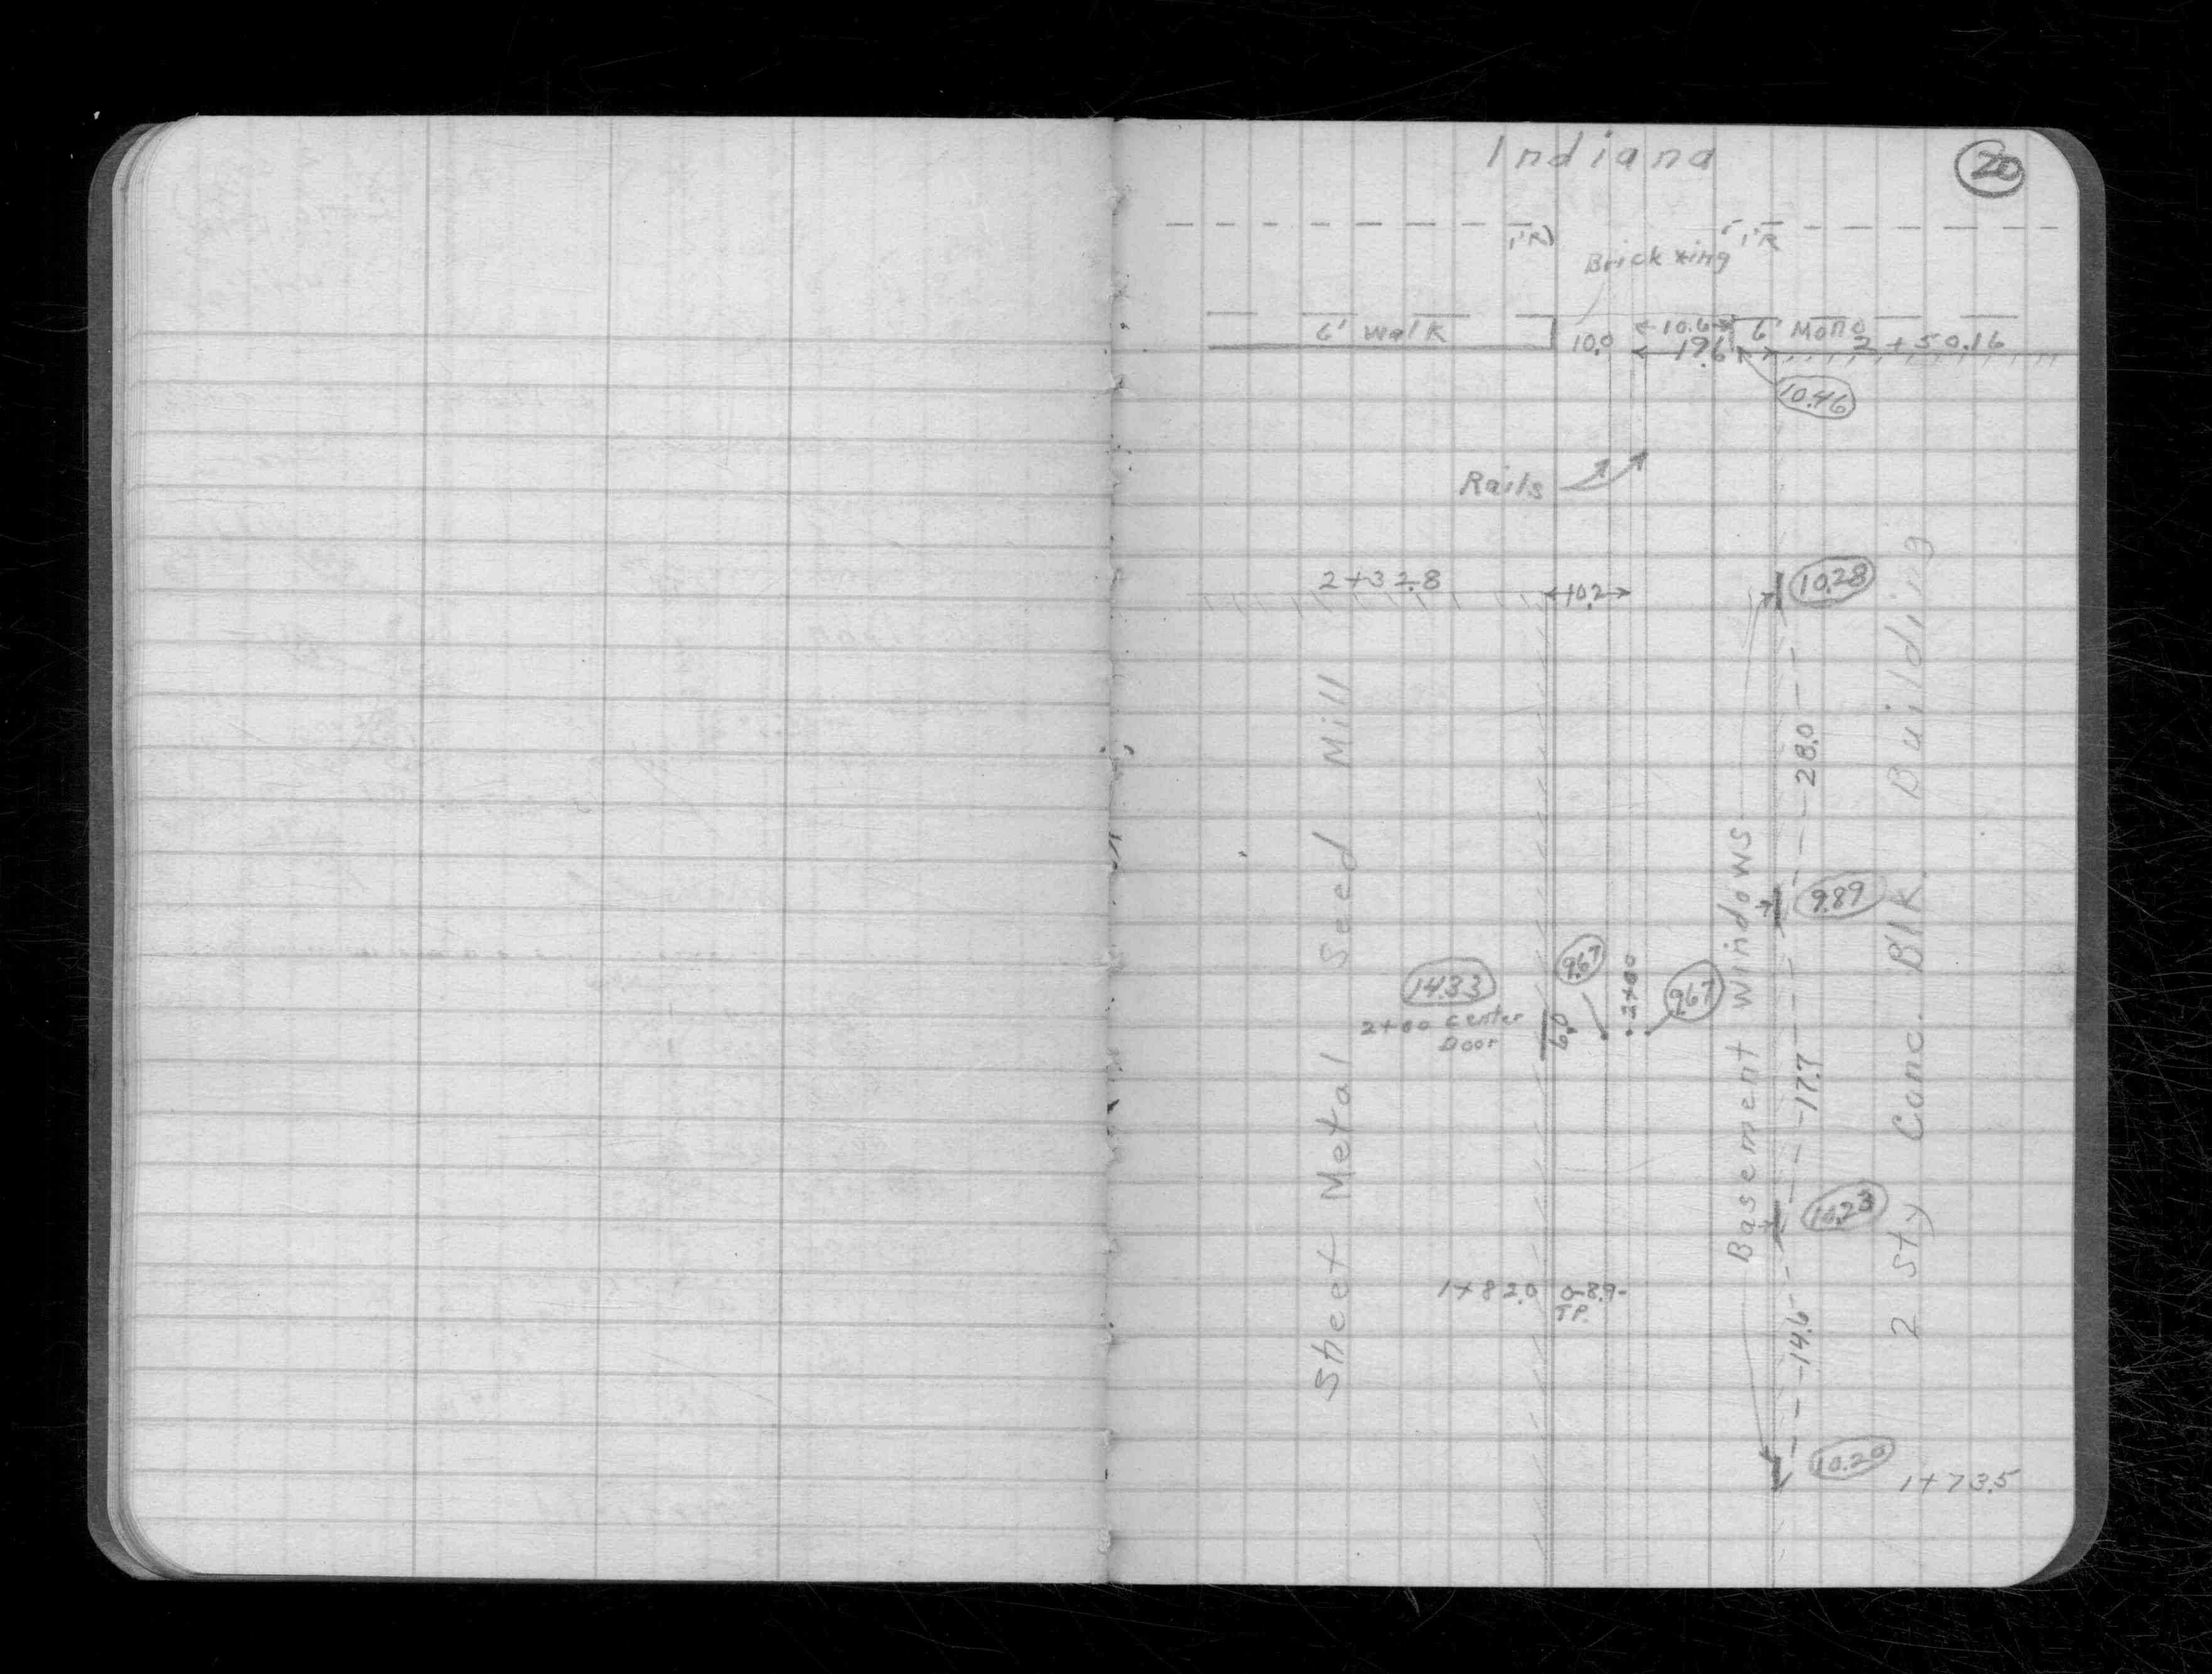 Indiana
20
1'R
1'R
Brick xing
6' Walk
10.0
10.6
6' Mono
19.6
2+50.16
10.46
Rails
2+32.8
10.2
10.28
28.0
Sheet Metal Seed Mill
Basement Windows
2 Sty Conc. Blk. Building
9.89
14.33
2+00 Center
Door
6.0
9.67
2+00
9.67
17.7
10.23
1+82.0
8.9
T.P.
14.6
10.20
1+73.5